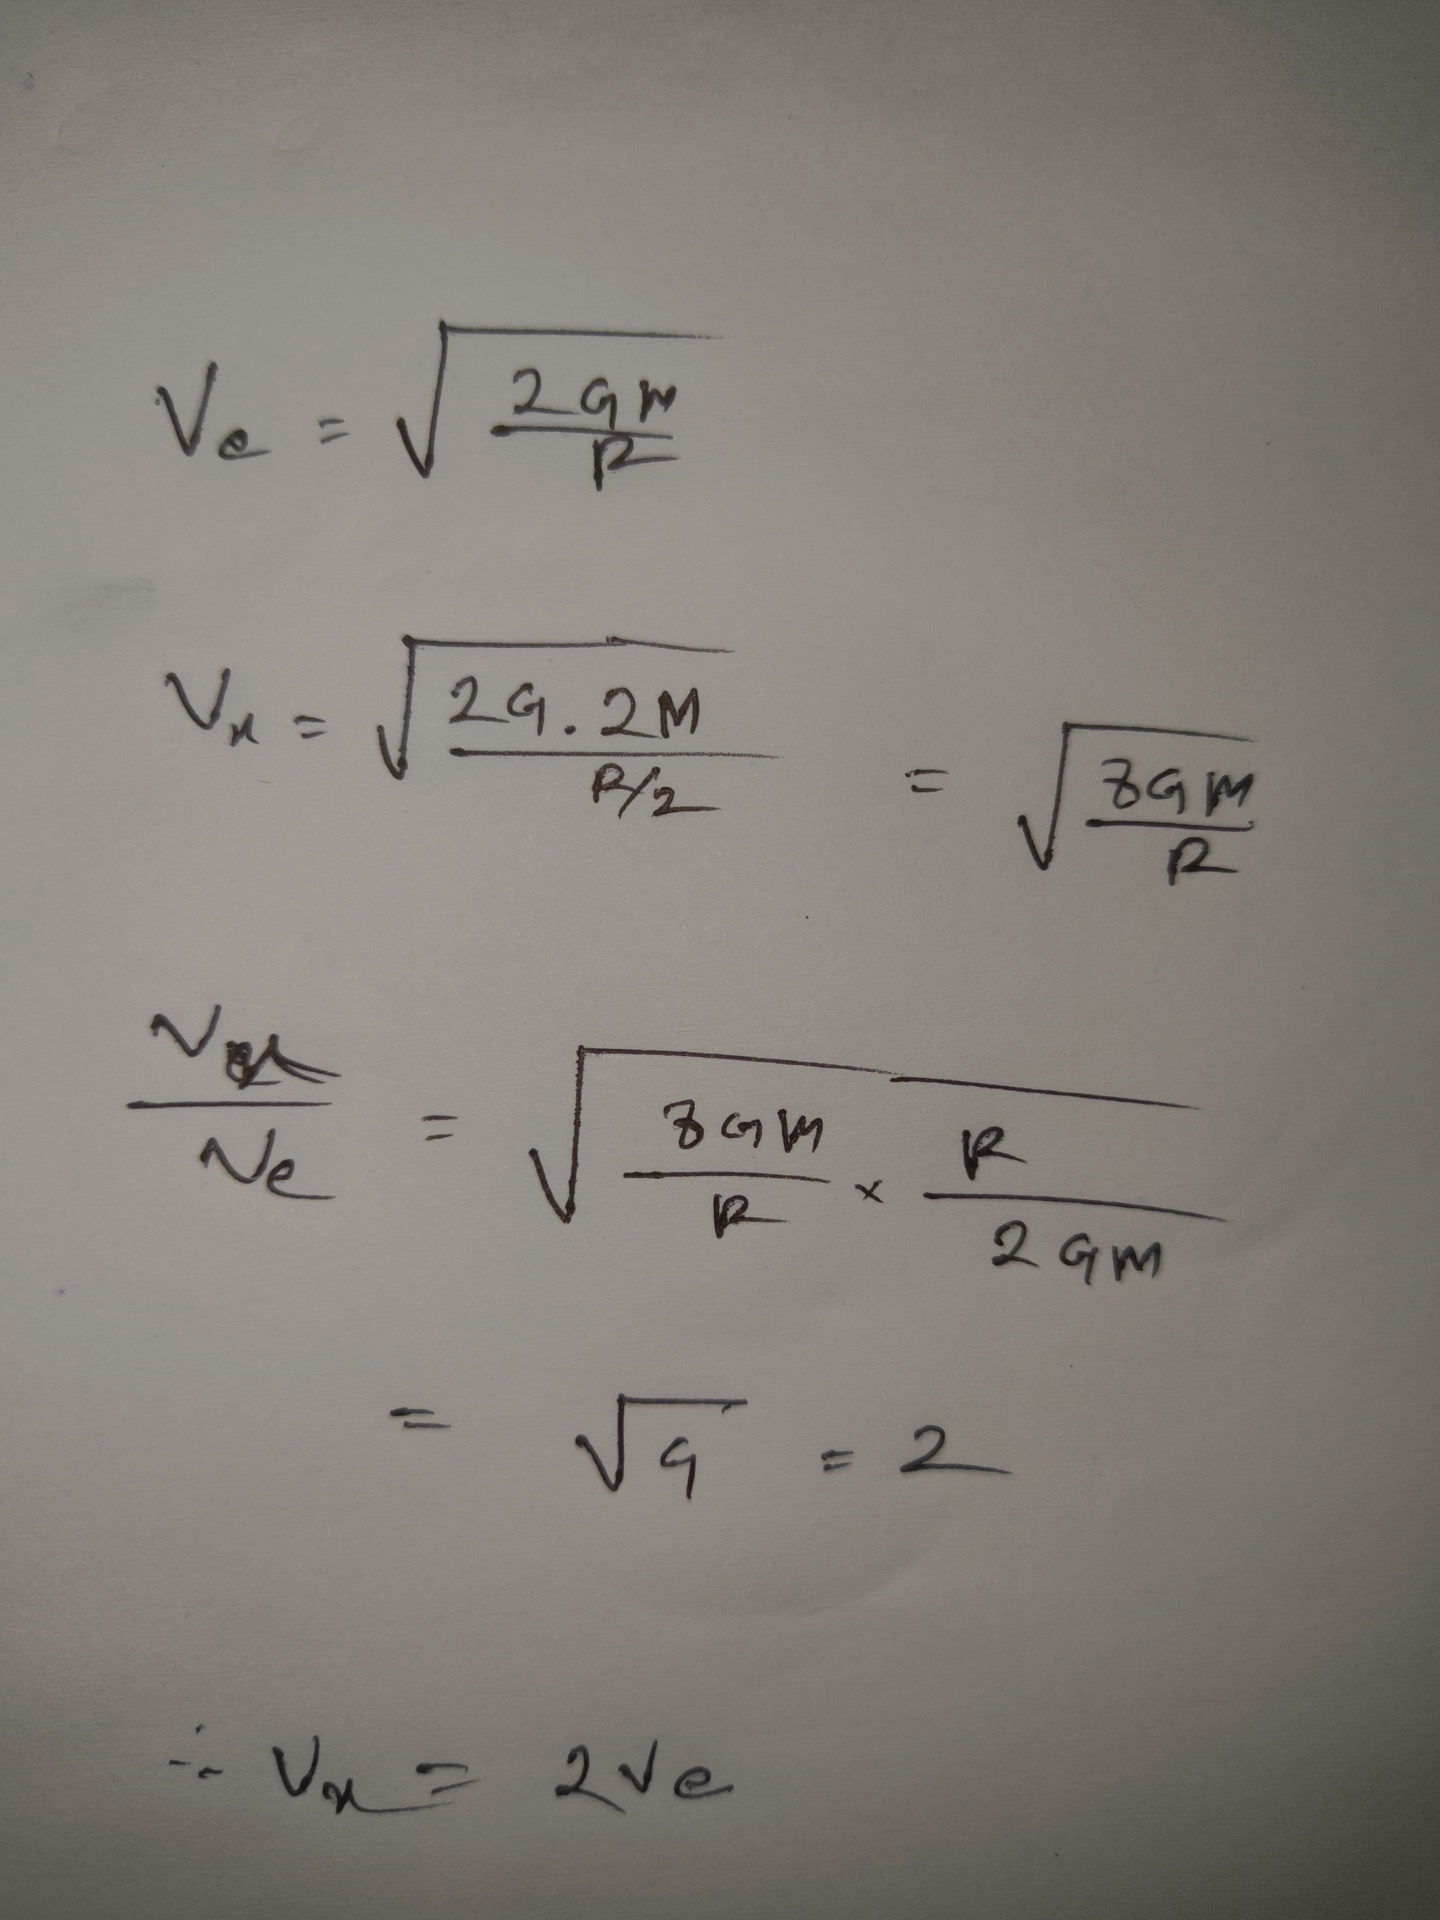 Ve = √(2GM/R)
Vx = √(2G.2M/R/2) = √(8GM/R)
Vx/Ve = √(8GM/R × R/2GM)
= √4 = 2
∴ Vx = 2Ve